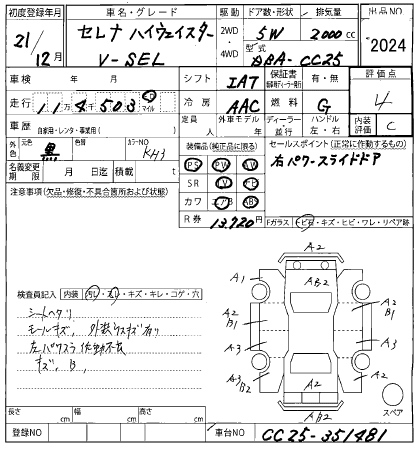 初度登録年月 車名・グレード 駆動 ドア数・形状 排気量 出品NO
21/12月 セレナ ハイウェイスター V-SEL 2WD 4WD 5W 2000cc 2024
型式 DBA-CC25
車検 年 月 シフト IAT 保証書 有・無 評価点
走行 11万4千503 km マイル 冷房 AAC 燃料 G 4
車歴 自家用・レンタ・事業用( ) 定員 人 外車モデル 年 ディーラー 並行 ハンドル 左・右 内装評価 C
外色 元色 黒 色替 カラーNO KH3 装備品(純正品に限る) セールスポイント(正常に作動するもの)
PS PW AW 右パワースライドドア
名義変更期限 月 日迄 積載 t SR TV
カワ エアB ABS
注意事項(欠品・修復・不具合箇所および状態) R券 13,720円 Fガラス トビ石・キズ・ヒビ・ワレ・リペア跡
A2
A1 AB2
検査員記入 内装 汚レ・キズ・キレ・コゲ・穴 A2 B1 A2 B1
シートヘタリ
モールキズ、外装小キズ有り
左パワスラ作動不良 A3 A3
キズ、B、
A3 B2 A2 A2
AB2 スペア
長さ cm 幅 cm 高さ cm
登録NO 車台NO CC25-351481